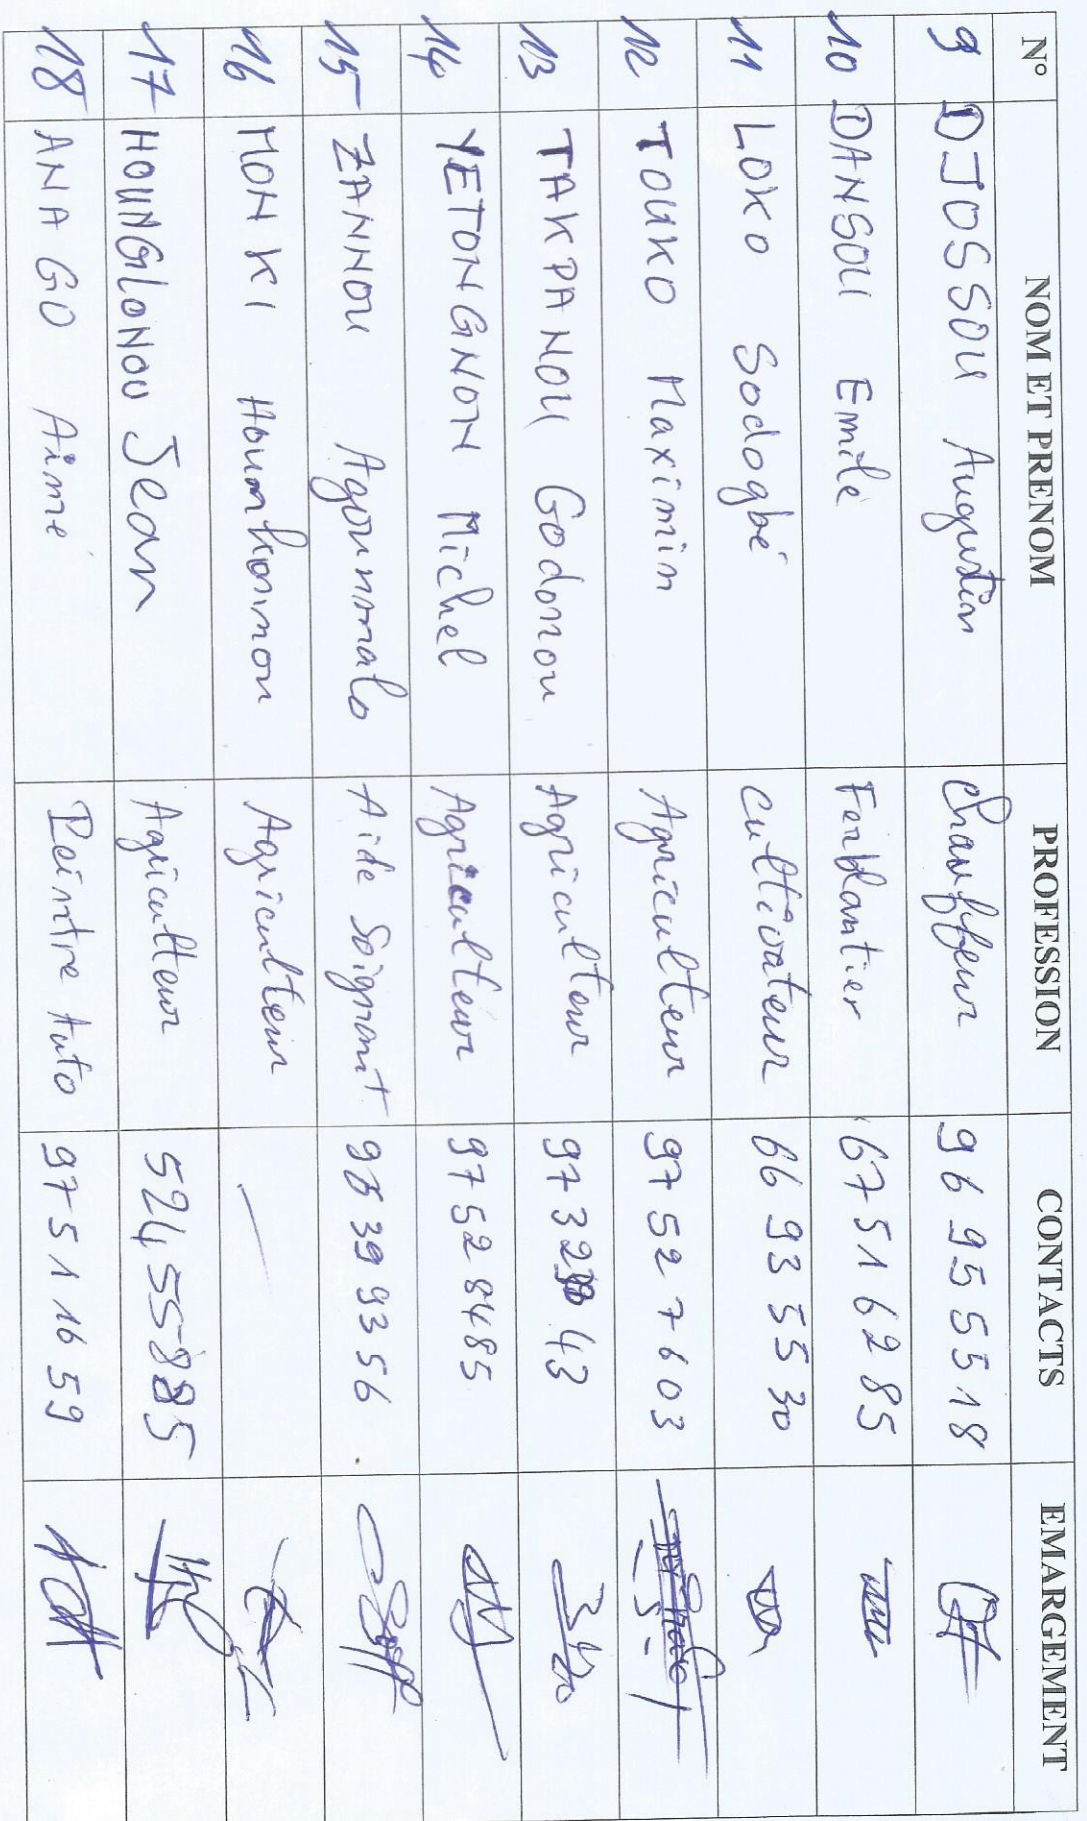 N° NOM ET PRENOM PROFESSION CONTACTS EMARGEMENT
9 DJOSSOU Augustin Chauffeur 96 95 55 18
10 DANSOU Emile Ferblantier 67 51 62 85
11 LOKO Sodogbé Cultivateur 66 93 55 30
12 TOUKO Maximin Agriculteur 97 52 76 03
13 TAKPANOU Godonou Agriculteur 97 32 43
14 YETONGNON Michel Agriculteur 97 52 84 85
15 ZANNOU Agounmalo Aide Soignant 39 93 56
16 MONKI Hounkonnon Agriculteur
17 HOUNGLONOU Jean Agriculteur 52455885
18 ANAGO Aimé Peintre Auto 97 51 16 59